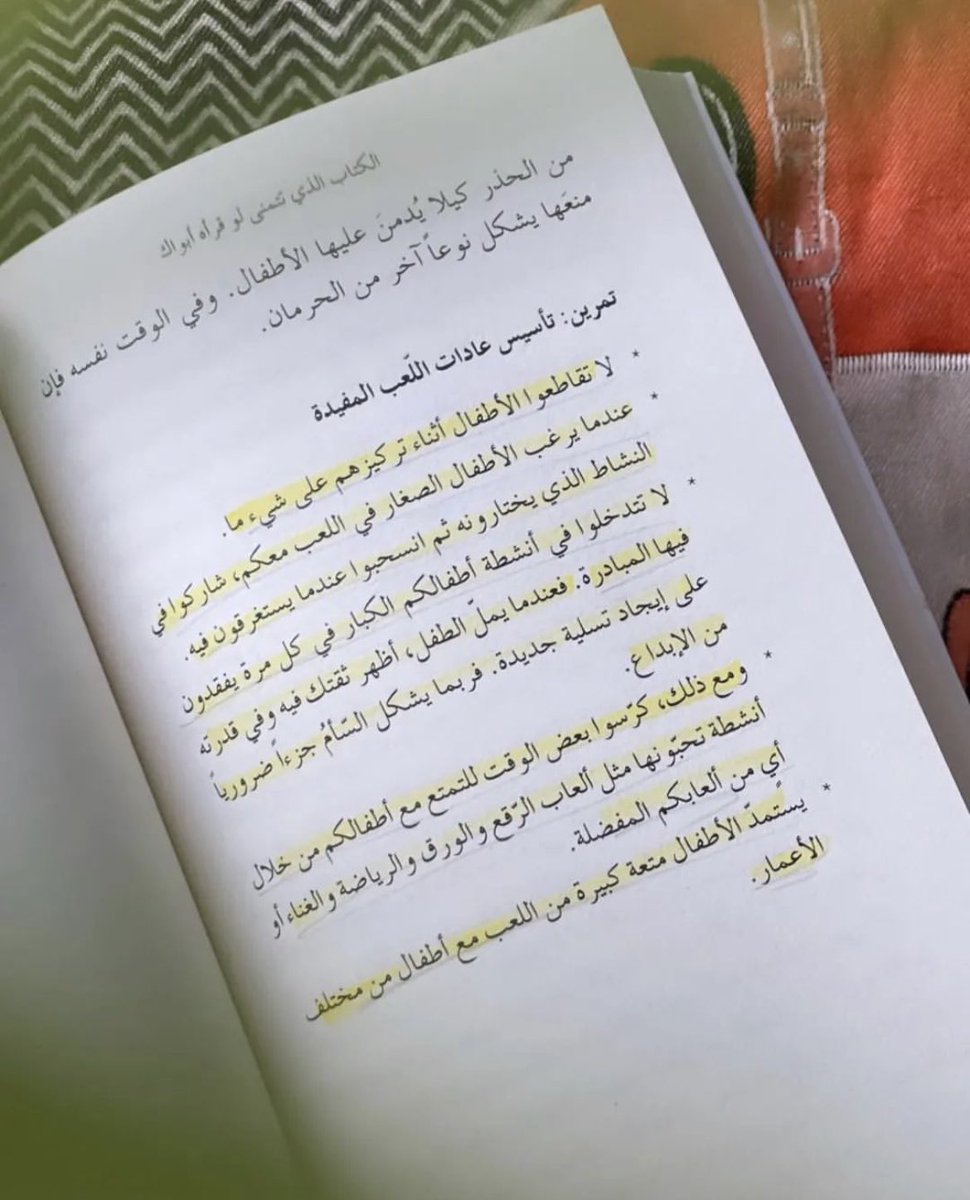 الكتاب الذي تتمنى لو قرأه أبواك
من الحذر كيلا يُدمنَ عليها الأطفال. وفي الوقت نفسه فإن
منعَها يشكل نوعاً آخر من الحرمان.
تمرين: تأسيس عادات اللّعب المفيدة
* لا تقاطعوا الأطفال أثناء تركيزهم على شيء ما.
* عندما يرغب الأطفال الصغار في اللعب معكم، شاركوا في
النشاط الذي يختارونه ثم انسحبوا عندما يستغرقون فيه.
* لا تتدخلوا في أنشطة أطفالكم الكبار في كل مرة يفقدون
فيها المبادرة. فعندما يملّ الطفل، أظهر ثقتك فيه وفي قدرته
على إيجاد تسلية جديدة. فربما يشكل السّأمُ جزءاً ضرورياً
من الإبداع.
* ومع ذلك، كرّسوا بعض الوقت للتمتع مع أطفالكم من خلال
أنشطة تحبّونها مثل ألعاب الرّقع والورق والرياضة والغناء أو
أي من ألعابكم المفضلة.
* يستمدّ الأطفال متعة كبيرة من اللعب مع أطفال من مختلف
الأعمار.